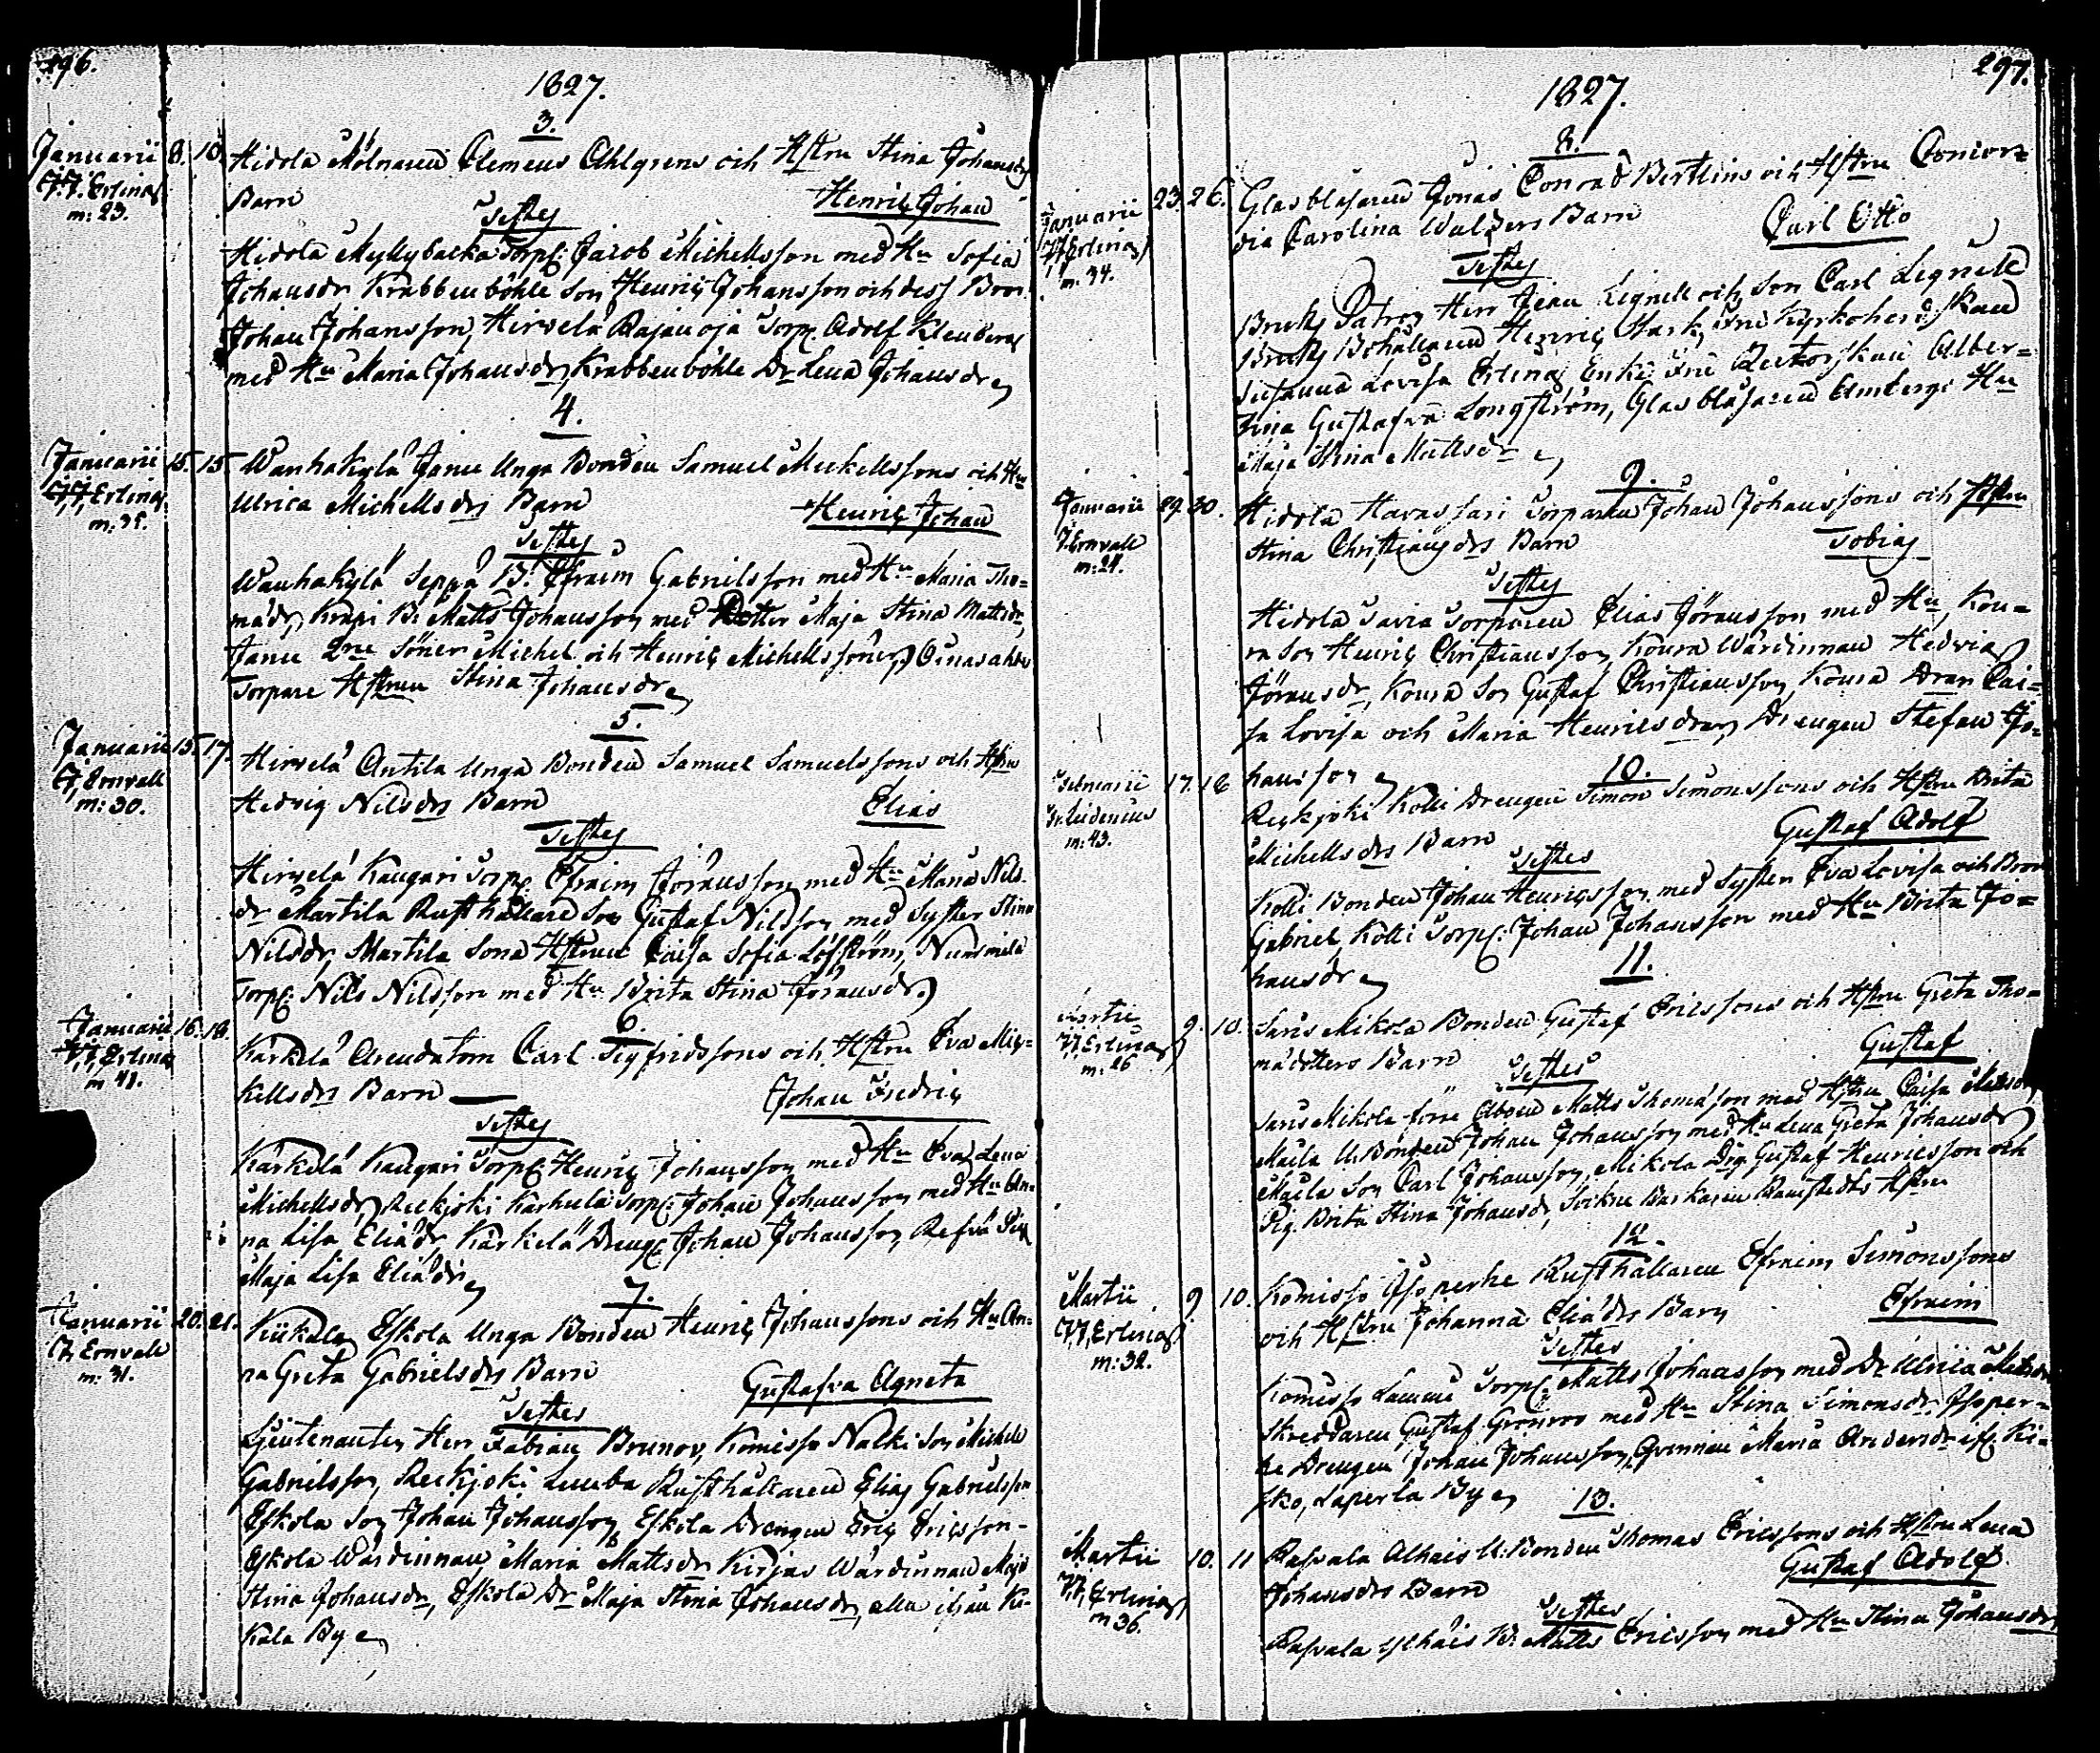 296.
1827.
3.
Januarii 8. 10. Hidola Mölnaren Clemens Ahlgrens och Hstru Stina Johansdrs
J.J. Erling
m: 23.
Barn Henric Johan
Testes
Hidola Myllybacka Torp: Jacob Michelsson med Hu Sofia
Johansdr Krabbenböhle Son Henric Johansson och dess Bror
Johan Johansson, Hirvelä Rajanoja Torp. Adolf
med Hu Maria Johansdr, Krabbenböhle Dr Lena Johansdr
4.
Januarii 15. 15. Wanhakylä Janu Unga Bonden Samuel Mickellssons och Hus
J.J. Erling
m: 35.
Ulrica Michellsdrs Barn Henric Johan
Testes
Wanhakylä Seppä B: Efraim Gabrielsson med Hu Maria Tho=
madr, Knapi B: Matts Johansson med Dotter Maja Stina Mattsdr,
Janu 2ne Söner Michel och Henric Michelssöner,
Torpare Hstrun Stina Johansdr
5.
Januarii 15. 17. Hirvelä Antila Unga Bonden Samuel Samuelssons och Hstru
J. Ernvall
m: 30.
Hedvig Nilsdrs Barn Elias
Testes
Hirvelä Kangari Torp: Efraim Göransson med Hu Maria Nils-
dr Martila Rusthållare Son Gustaf Nilsson med Syster Stina
Nilsdr, Martila Sona Hstrun Caisa Sofia Löfström, Nummila
Torp: Nils Nilsson med Hu Brita Stina Göransdr
6.
Januarii 16. 18. Kärkelä Arendatorn Carl Sigfridssons och Hstru Eva Mic-
J.J. Erling
m 41.
kellsdrs Barn Johan Fredric
Testes
Kärkelä Kangari Torp: Henric Johansson med Hu Eva Lena
Michellsdr, Reckjoki Karhula Torp: Johan Johansson med Hu An-
na Lisa Eliädr, Kärkelä Dreng: Johan Johansson, Refvä Pig
Maja Lisa Eliädr
7.
Januarii 20. 21. Kukala Eskola Unga Bonden Henric Johanssons och Hu An-
J. Ernvall
m: 31.
na Greta Gabrielsdrs Barn Gustafva Agneta
Testes
Lieutenanten Herr Fabian Brunov, Komisso Nalki Son Michel
Gabrielsson, Reckjoki Lemba Rusthållaren Elias Gabrielsson
Eskola Son Johan Johansson, Eskola Drengen Eric Ericsson-
Eskola Wärdinnan Maria Mattsdr Kirjas Wärdinnan Maja
Stina Johansdr, Eskola Dr Maja Stina Johansdr, alla ifrån Ku-
kala By
297.
1827.
8.
Januarii 23. 26. Glasblåsaren Jonas Conrad Bertlins och Hstru
J.J. Erling
m. 34.
dia Carolina Walders Barn Carl Otto
Testes
Bruks Patron Herr Jean Lignell och Son Carl Lignell
Bruks Bokhållaren Henric Stark, Fru Kyrkoherdskan
Susanna Lovisa Erling Enke Fru Rectorskan Alber=
tina Gustafva Longström, Glasblåsaren Ambergs Hu
Maja Stina Mattsdr
9.
Januarii 29. 30. Hidola Havassari Torparen Johan Johanssons och Hstru
J. Ernvall
m: 24.
Stina Christiansdrs Barn Tobias
Testes
Hidola Savia Torparen Elias Göransson med Hu, Kou-
ra Son Henric Christiansson, Koura Wärdinnan Hedvig
Göransdr, Koura Son Gustaf Christiansson, Koura Dran Cai=
sa Lovisa och Maria Henricsdrar, Drengen Stefan Jo-
hansson
10.
17. 18 Reckjoki Kolli Drengen Simon Simonssons och Hstru Brita
m: 43.
Michellsdrs Barn Gustaf Adolf
Testes
Kolli Bonden Johan Henricsson med Syster Eva Lovisa och Bror
Gabriel, Kolli Torp: Johan Johansson med Hu Brita Jo=
hansdr
11.
Martii 9. 10. Saris Mikola Bonden Gustaf Ericssons och Hstru Greta Tho=
J.J. Erling
m: 26
madotters Barn Gustaf
Testes
Saris Mikola förre Åboen Matts Thomasson med Hstru Caisa Mattsdr,
Maila U. Bonden Johan Johansson med Hu Lena Greta Johansdr
Maila Son Carl Johansson, Mikola Drg. Gustaf Henricsson och
Pig. Brita Stina Johansdr, Sockne Hstru
12.
Martii 9. 10. Komisso Isoperhe Rusthållaren Efraim Simonssons
J.J. Erling
m: 32.
och Hstru Johanna Eliädrs Barn Efraim
Testes
Komisso Lammi Torp: Matts Johansson med Dr Ulrica Mattsdr
Skreddaren Gustaf Grönroos med Hu Stina Simonsdr, Isoper-
he Drengen Johan Johansson, Qvinnan Maria Andersdr if: Ki-
sko, Laperla By
13.
Martii 10. 11 Raswala Alhais U. Bonden Thomas Ericssons och Hstru Lena
J.J. Erling
m 36.
Johansdrs Barn Gustaf Adolf.
Testes
Raswala Ylhäis B. Matts Ericsson med Hu Stina Johansdr